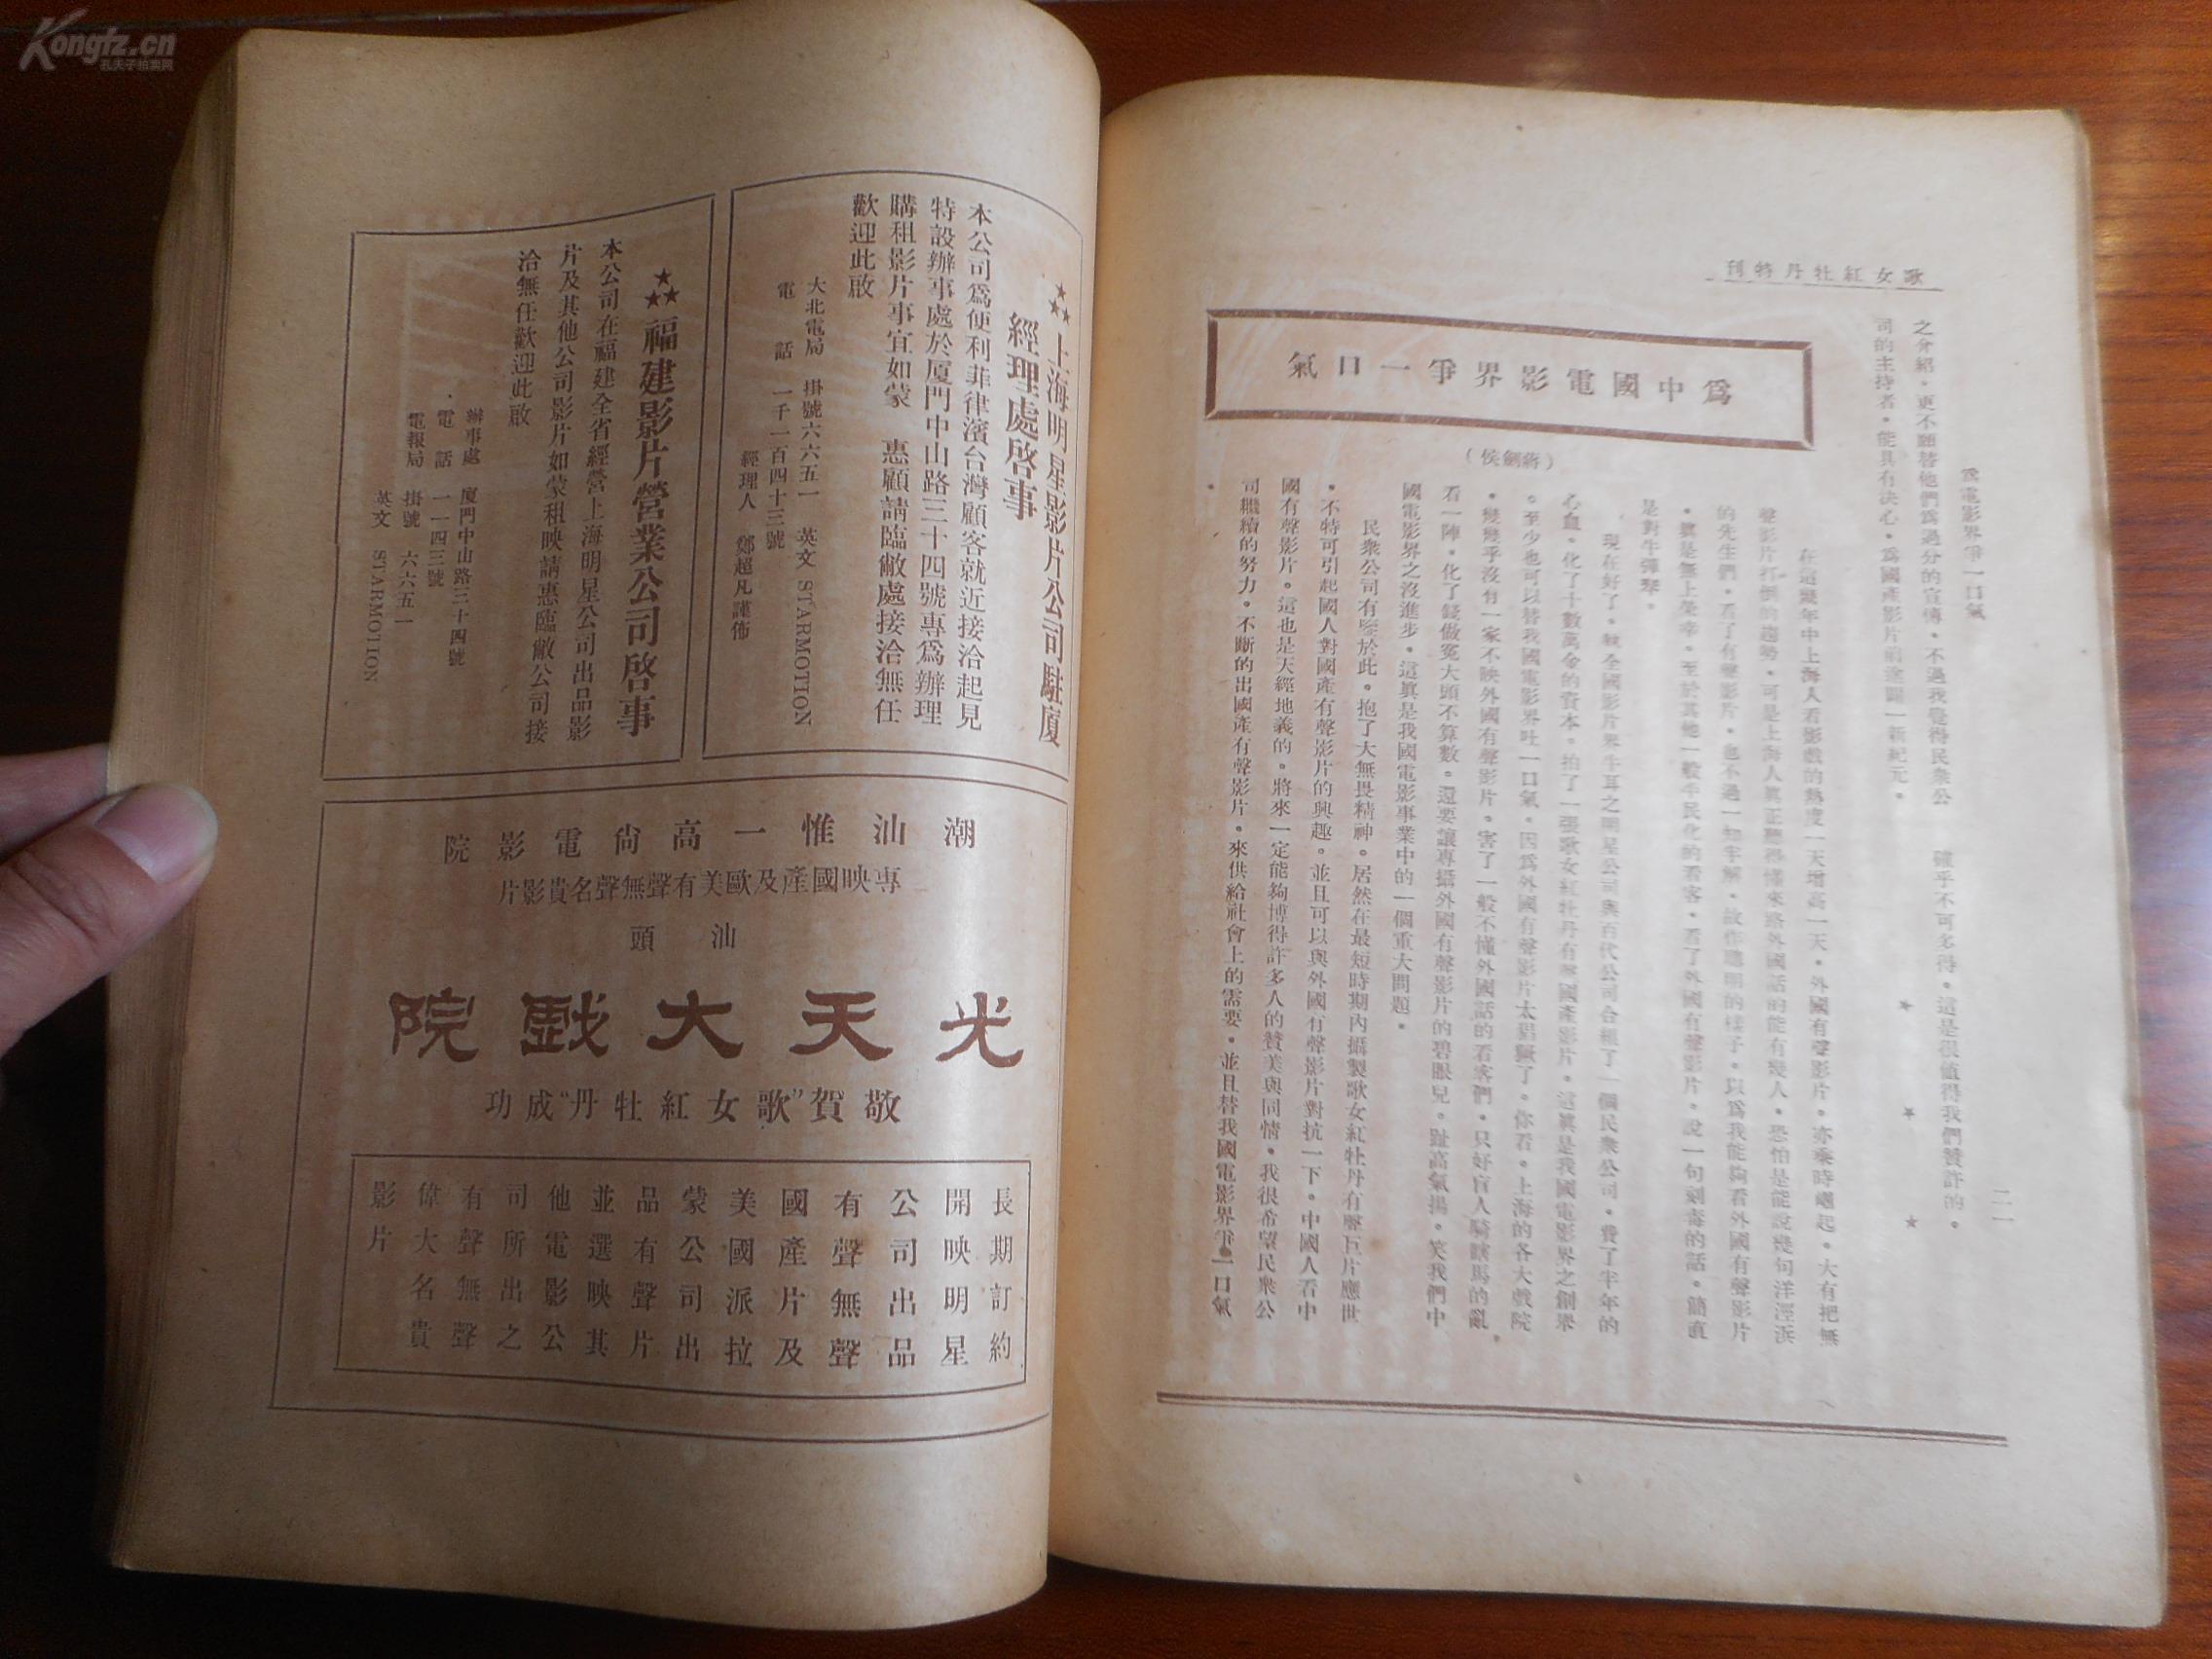 Kongfz.cn
孔夫子拍卖网
歌女紅牡丹特刊
爲電影界爭一口氣
二一
之介紹。更不願替他們爲過分的宣傳。不過我覺得民衆公
司的主持者。能具有決心。爲國產影片前途闢一新紀元。
確乎不可多得。這是很值得我們贊許的。
爲中國電影界爭一口氣
(蔣劍侯)
在這幾年中上海人看影戲的熱度一天增高一天。外國有聲影片。亦乘時崛起。大有把無
聲影片打倒的趨勢。可是上海人眞正聽得懂來路外國話的能有幾人。恐怕是能說幾句洋涇浜
的先生們。看了有聲影片。也不過一知半解。故作聰明的樣子。以爲我能夠看外國有聲影片
。眞是無上榮幸。至於其他一般平民化的看客。看了外國有聲影片。說一句刻毒的話。簡直
是對牛彈琴。
現在好了。執全國影片界牛耳之明星公司與百代公司合組了一個民衆公司。費了半年的
心血。化了十數萬金的資本。拍了一張歌女紅牡丹有聲國產影片。這眞是我國電影界之創舉
。至少也可以替我國電影界吐一口氣。因爲外國有聲影片太猖獗了。你看。上海的各大戲院
。幾幾乎沒有一家不映外國有聲影片。害了一般不懂外國話的看客們。只好盲人騎瞎馬的亂
看一陣。化了錢做冤大頭不算數。還要讓專攝外國有聲影片的碧眼兒。趾高氣揚。笑我們中
國電影界之沒進步。這眞是我國電影事業中的一個重大問題。
民衆公司有鑒於此。抱了大無畏精神。居然在最短時期內攝製歌女紅牡丹有聲巨片應世
。不特可引起國人對國產有聲影片的興趣。並且可以與外國有聲影片對抗一下。中國人看中
國有聲影片。這也是天經地義的。將來一定能夠博得許多人的贊美與同情。我很希望民衆公
司繼續的努力。不斷的出國產有聲影片。來供給社會上的需要。並且替我國電影界爭一口氣
。
上海明星影片公司駐廈
經理處啓事
本公司爲便利菲律濱台灣顧客就近接洽起見
特設辦事處於廈門中山路三十四號專爲辦理
購租影片事宜如蒙 惠顧請臨敝處接洽無任
歡迎此啟
大北電局 掛號六六五一 英文 STARMOTION
電 話 一千一百四十三號
經理人 鄭超凡謹佈
福建影片營業公司啓事
本公司在福建全省經營上海明星公司出品影
片及其他公司影片如蒙租映請惠臨敝公司接
洽無任歡迎此啟
辦事處 廈門中山路三十四號
電 話 一一四三號
電報局 掛號 六六五一
英文 STARMOTION
潮汕惟一高尚電影院
專映國產及歐美有聲無聲名貴影片
汕頭
光天大戲院
敬賀"歌女紅牡丹"成功
長期訂約
開映明星
公司出品
有聲無聲
國產片及
美國派拉
蒙公司出
品有聲片
並選映其
他電影公
司所出之
有聲無聲
偉大名貴
影片